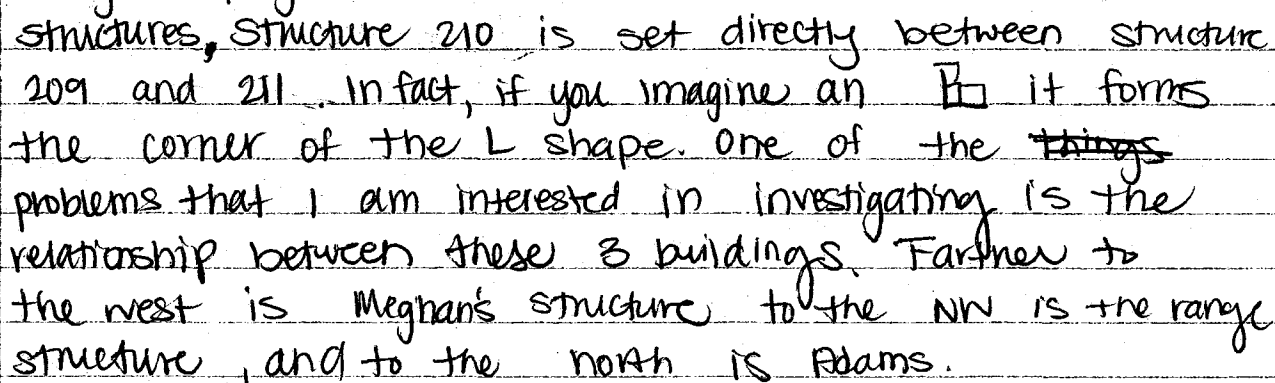 structures, structure 210 is set directly between structure
209 and 211. In fact, if you imagine an it forms
the corner of the L shape. One of the things
problems that I am interested in investigating is the
relationship between these 3 buildings. Farther to
the west is Meghan's structure to the NW is the range
structure, and to the north is Adams.